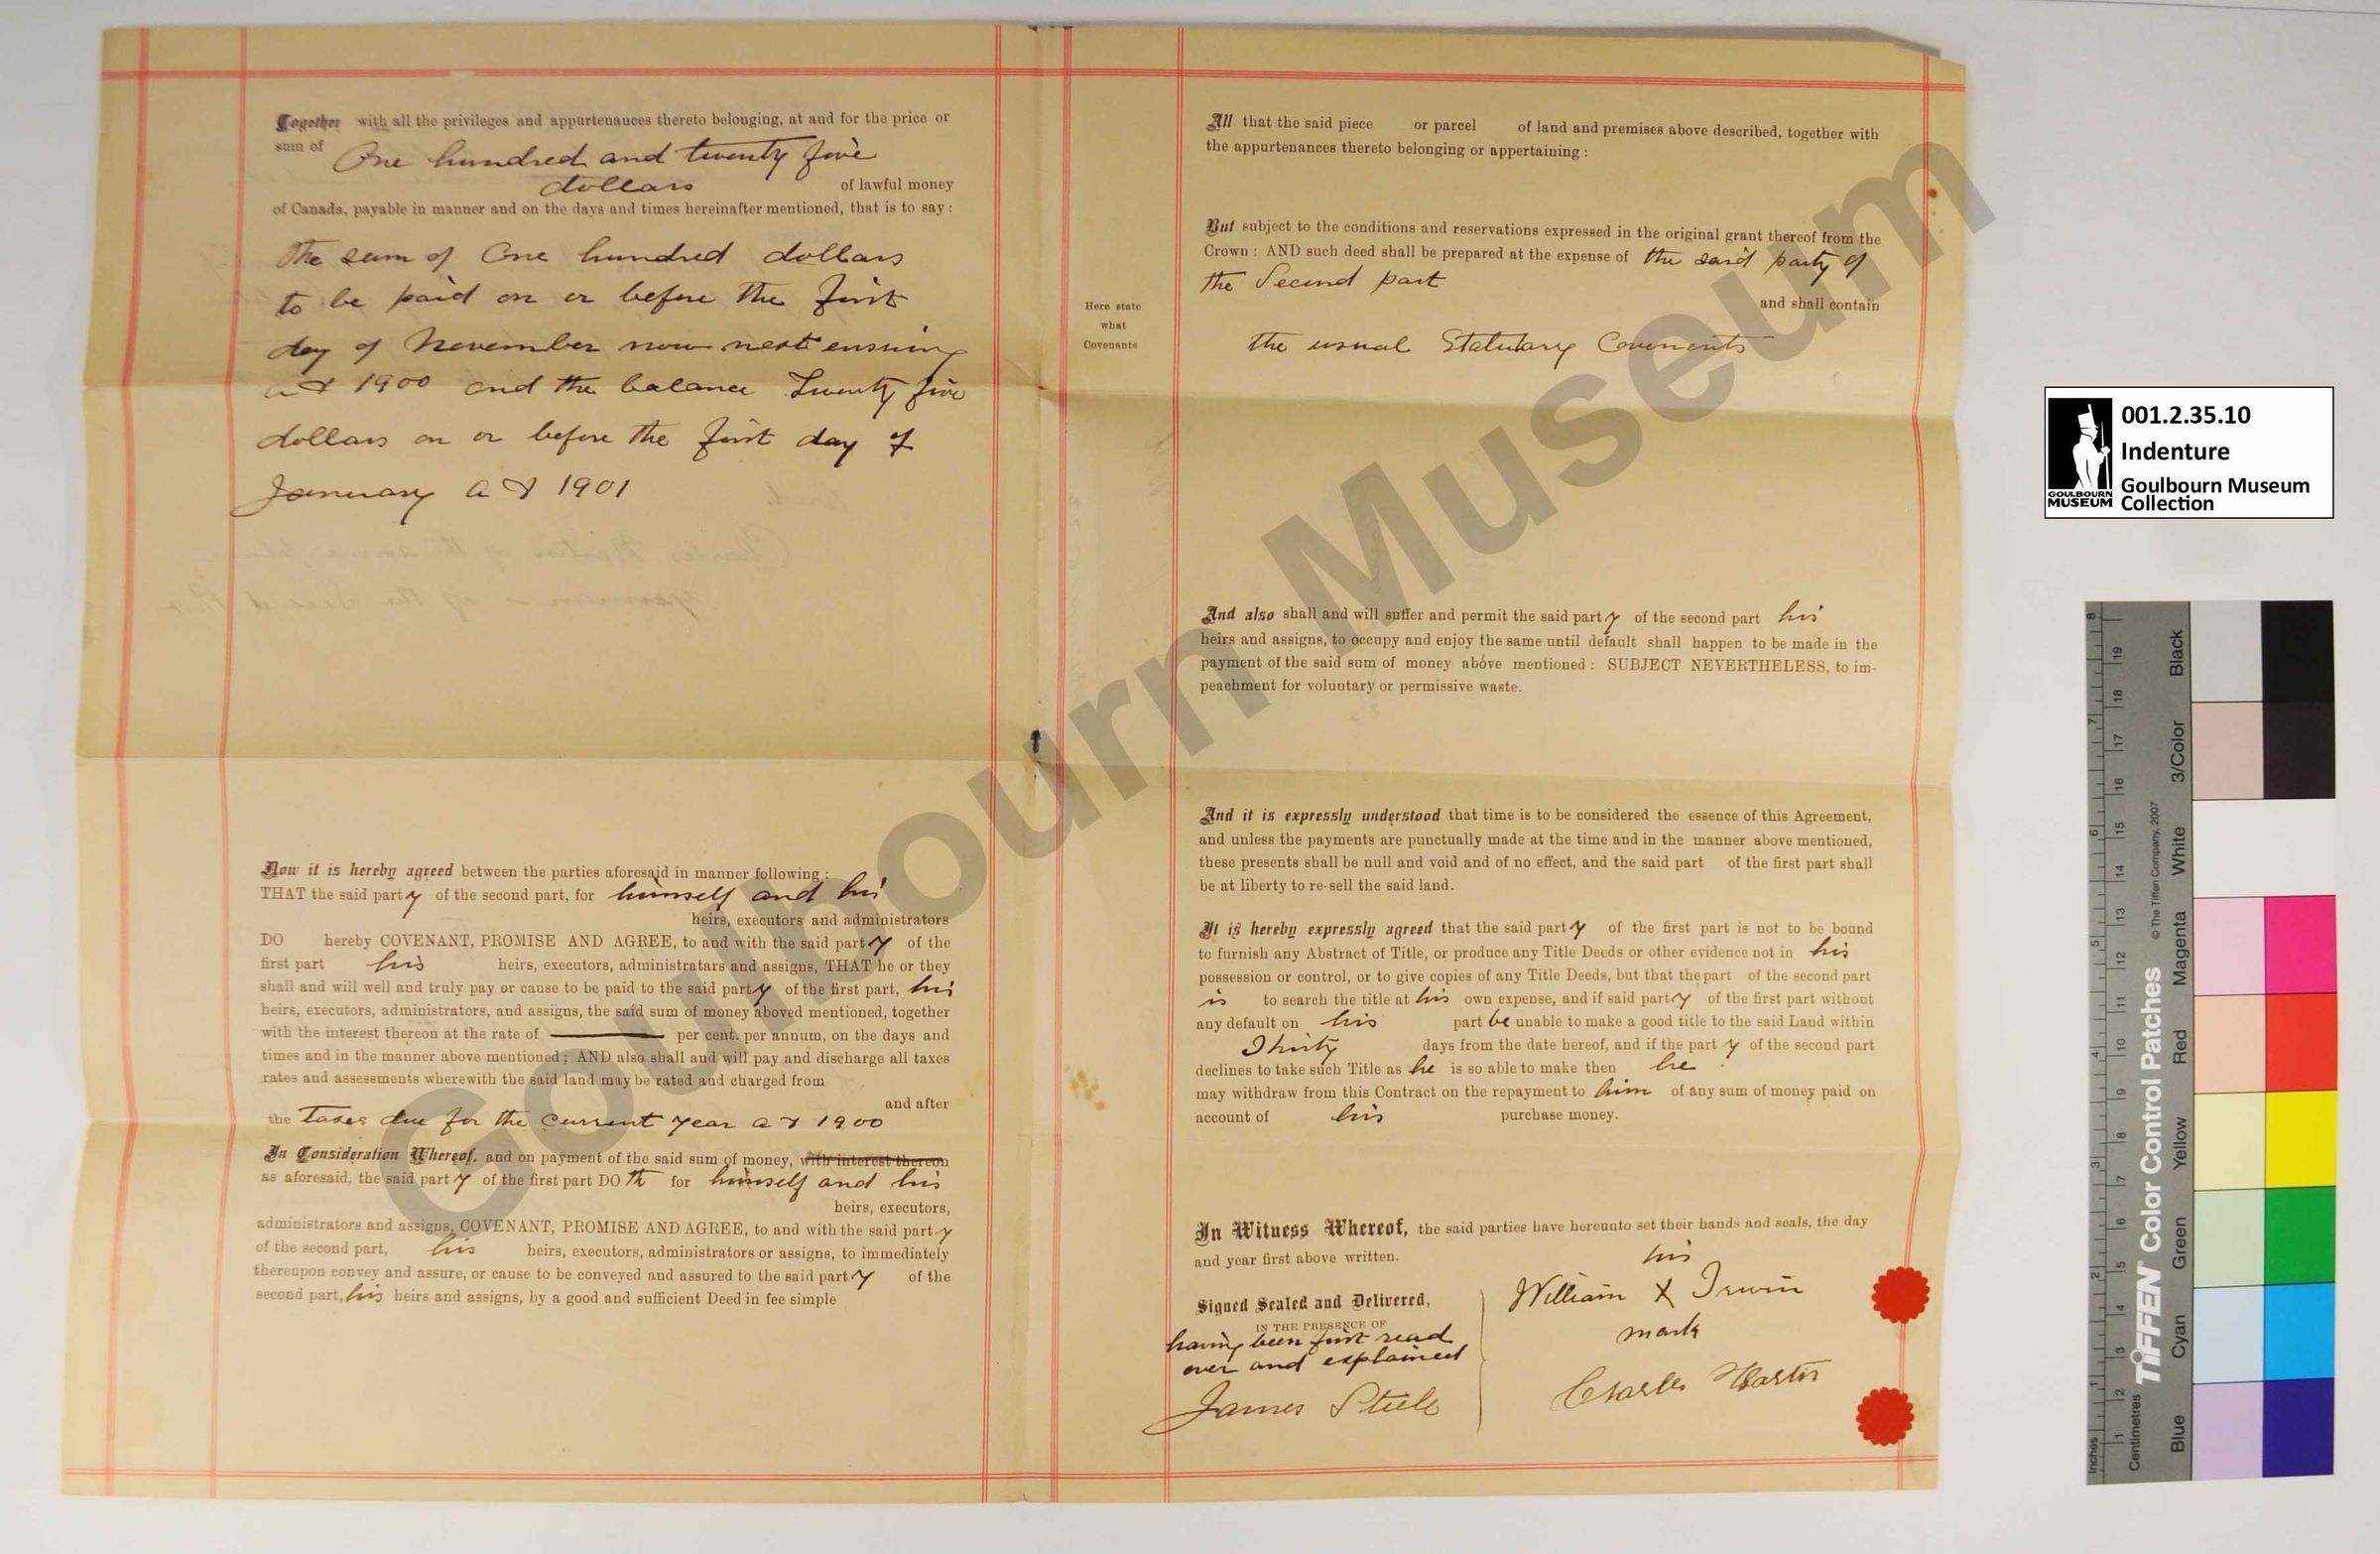 Together with all the privileges and appurtenances thereto belonging, at and for the price or
sum of One hundred and twenty five
dollars of lawful money
of Canada, payable in manner and on the days and times hereinafter mentioned, that is to say:
The sum of One hundred dollars
to be paid on or before the first
day of November now next ensuing
A D 1900 and the balance Twenty five
dollars on or before the first day of
January A D 1901
Now it is hereby agreed between the parties aforesaid in manner following:
THAT the said party of the second part, for himself and his
heirs, executors and administrators
DO hereby COVENANT, PROMISE AND AGREE, to and with the said party of the
first part his heirs, executors, administratars and assigns, THAT he or they
shall and will well and truly pay or cause to be paid to the said party of the first part, his
heirs, executors, administrators, and assigns, the said sum of money aboved mentioned, together
with the interest thereon at the rate of ——— per cent. per annum, on the days and
times and in the manner above mentioned; AND also shall and will pay and discharge all taxes
rates and assessments wherewith the said land may be rated and charged from
and after
the taxes due for the current year A D 1900
In Consideration Whereof, and on payment of the said sum of money, with interest thereon
as aforesaid, the said party of the first part DOth for himself and his
heirs, executors,
administrators and assigns, COVENANT, PROMISE AND AGREE, to and with the said party
of the second part, his heirs, executors, administrators or assigns, to immediately
thereupon convey and assure, or cause to be conveyed and assured to the said party of the
second part, his heirs and assigns, by a good and sufficient Deed in fee simple
All that the said piece or parcel of land and premises above described, together with
the appurtenances thereto belonging or appertaining:
But subject to the conditions and reservations expressed in the original grant thereof from the
Crown: AND such deed shall be prepared at the expense of the said party of
the Second part
and shall contain
Here state
what
Covenants
the usual Statutary Covenents
And also shall and will suffer and permit the said party of the second part his
heirs and assigns, to occupy and enjoy the same until default shall happen to be made in the
payment of the said sum of money above mentioned: SUBJECT NEVERTHELESS, to im-
peachment for voluntary or permissive waste.
And it is expressly understood that time is to be considered the essence of this Agreement,
and unless the payments are punctually made at the time and in the manner above mentioned,
these presents shall be null and void and of no effect, and the said part of the first part shall
be at liberty to re-sell the said land.
It is hereby expressly agreed that the said party of the first part is not to be bound
to furnish any Abstract of Title, or produce any Title Deeds or other evidence not in his
possession or control, or to give copies of any Title Deeds, but that the part of the second part
is to search the title at his own expense, and if said party of the first part without
any default on his part be unable to make a good title to the said Land within
Thirty days from the date hereof, and if the party of the second part
declines to take such Title as he is so able to make then he
may withdraw from this Contract on the repayment to him of any sum of money paid on
account of his purchase money.
In Witness Whereof, the said parties have hereunto set their hands and seals, the day
and year first above written.
Signed Sealed and Delivered,
IN THE PRESENCE OF
having been first read
over and explained
James Steele
his
William X Irwin
mark
Charles Hartin
Goulbourn Museum
001.2.35.10
Indenture
Goulbourn Museum
Collection
GOULBOURN
MUSEUM
TIFFEN Color Control Patches
© The Tiffen Company, 2007
Inches
1 2 3 4 5 6 7 8
Centimetres
1 2 3 4 5 6 7 8 9 10 11 12 13 14 15 16 17 18 19
Blue Cyan Green Yellow Red Magenta White 3/Color Black